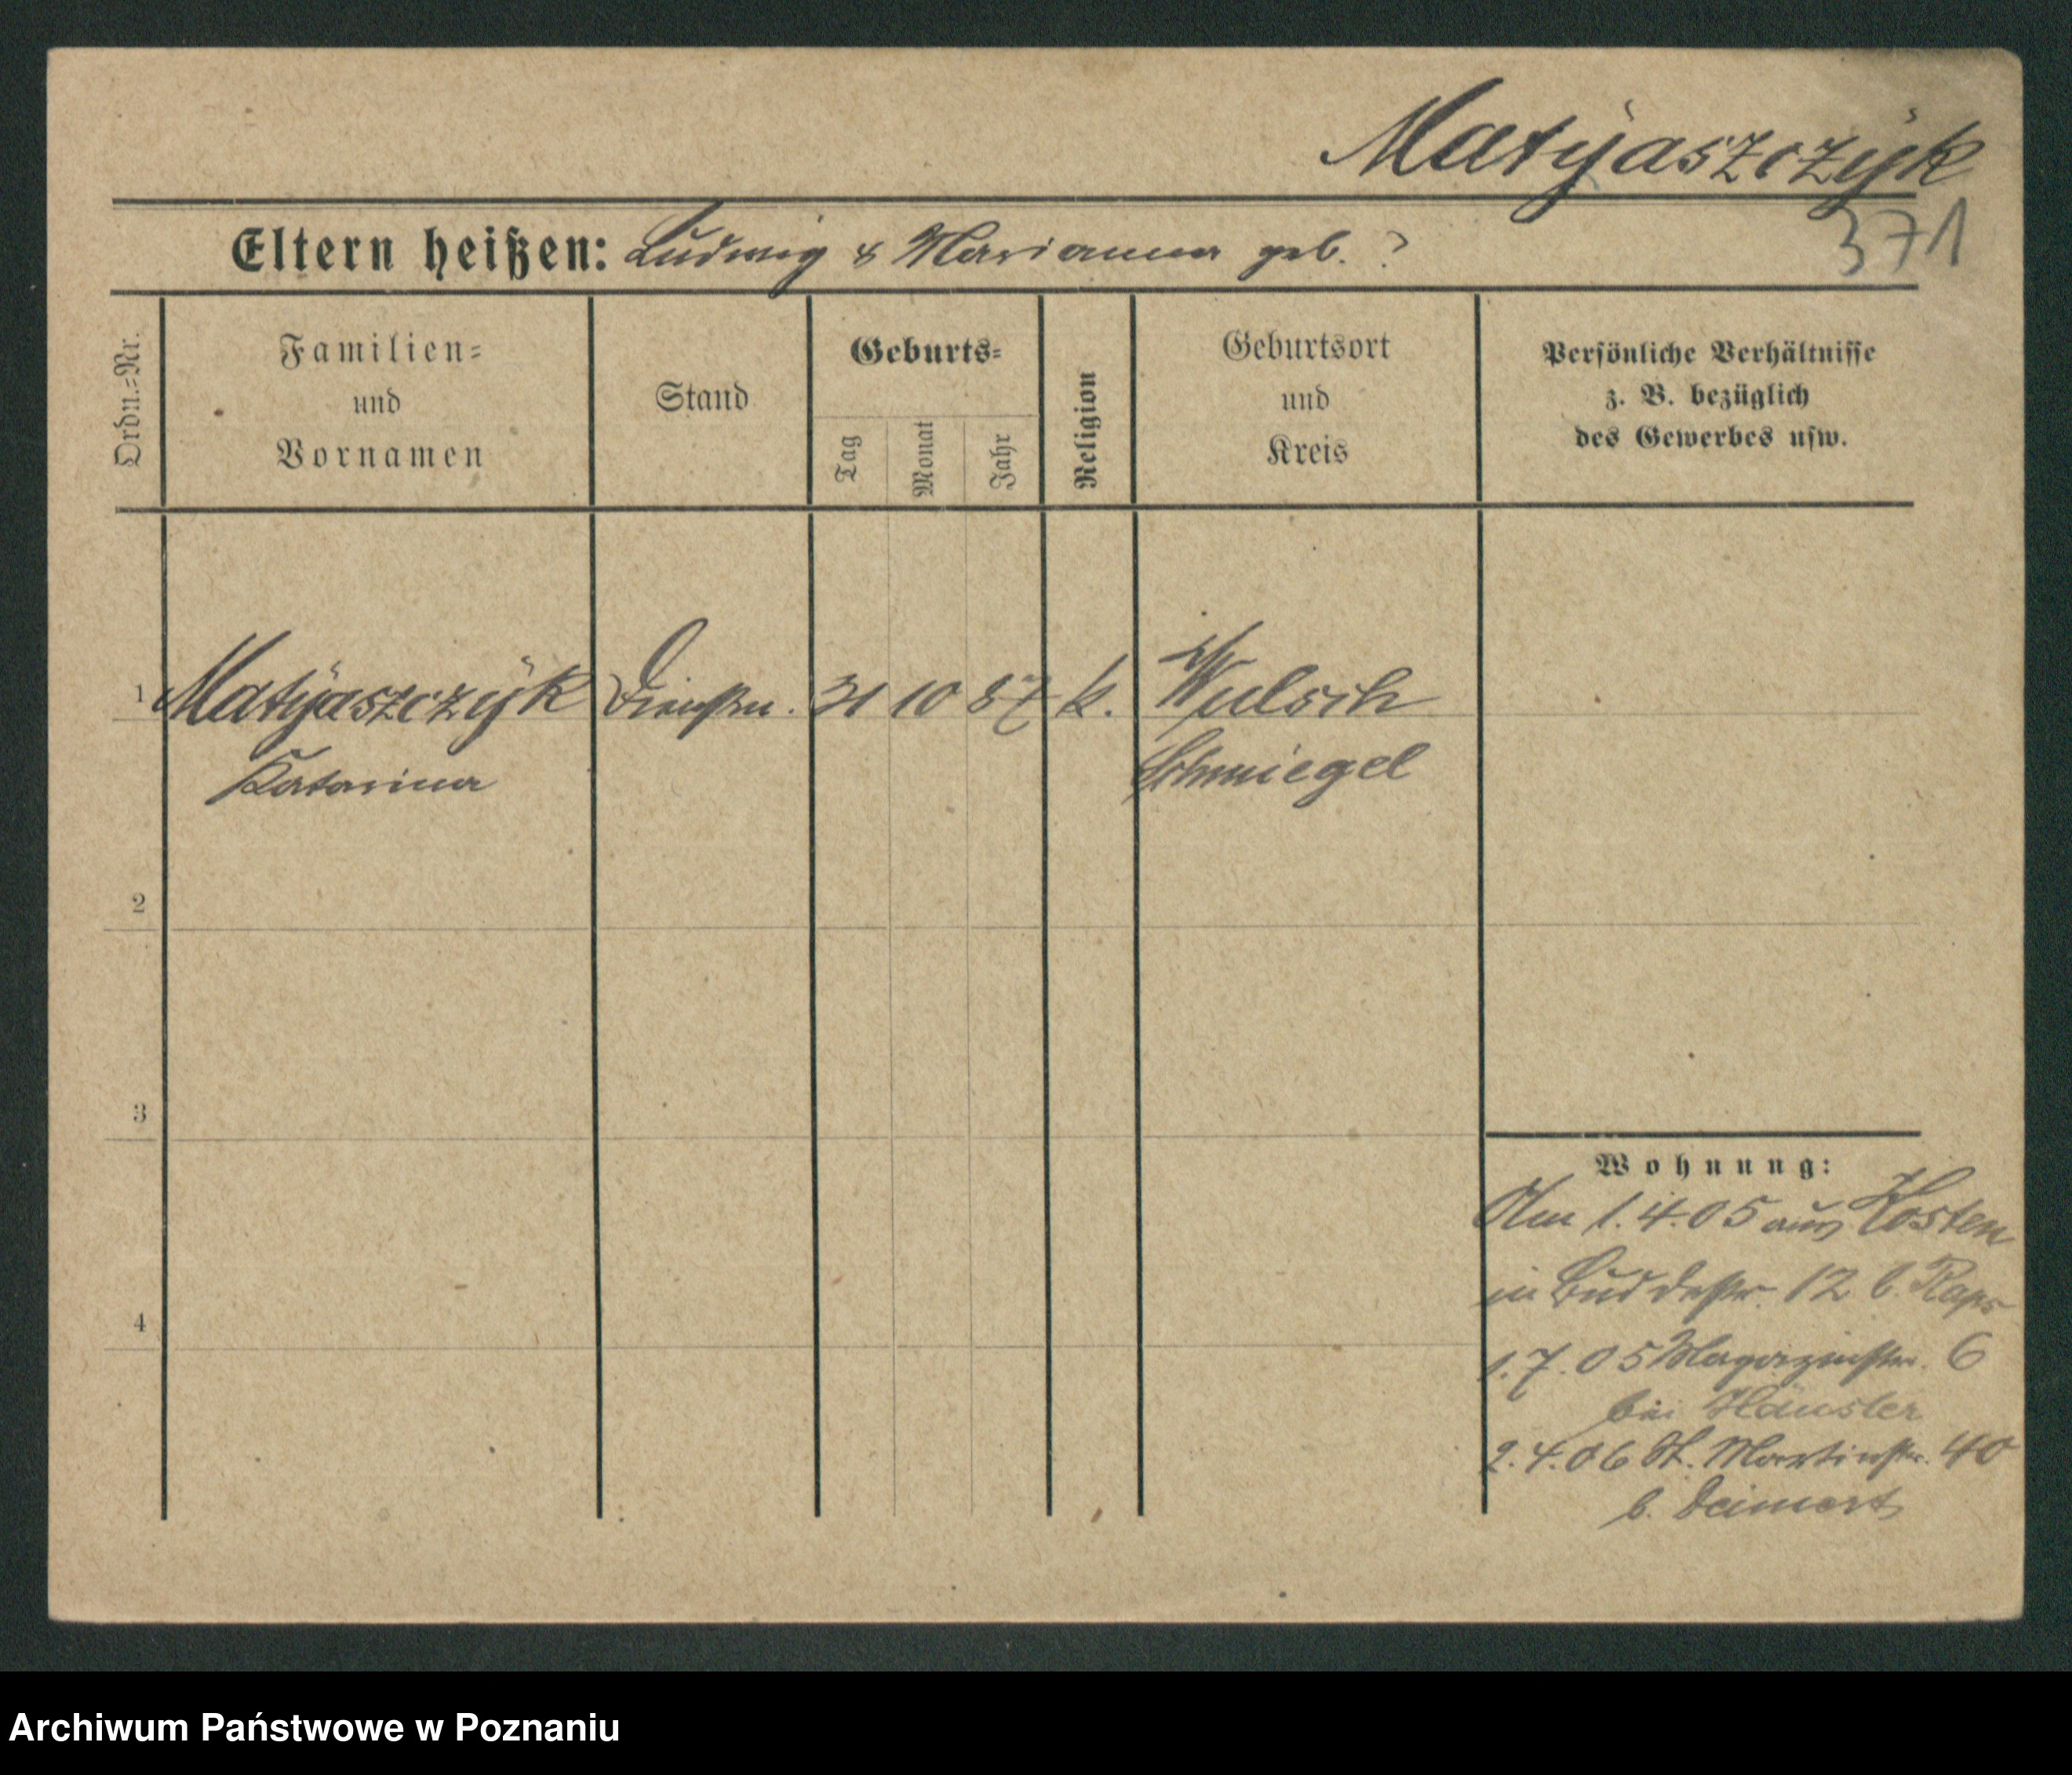 Matÿaszczÿk
371
Eltern heißen: Ludwig & Marianna geb. ?
Ordn.=Nr.
Familien=
und
Vornamen
Stand
Geburts=
Tag
Monat
Jahr
Religion
Geburtsort
und
Kreis
Persönliche Verhältnisse
z. B. bezüglich
des Gewerbes usw.
1 Matÿaszczÿk Dienstm. 31 10 87 k. Wulsch
Katarina Schmiegel
2
3
4
Wohnung:
Am 1.4.05 aus Kosten
in Buddestr. 12 b.
1.7.05 Magazinstr. 6
bei Häusler
2.4.06 St. Martinstr. 40
b. Deimert
Archiwum Państwowe w Poznaniu